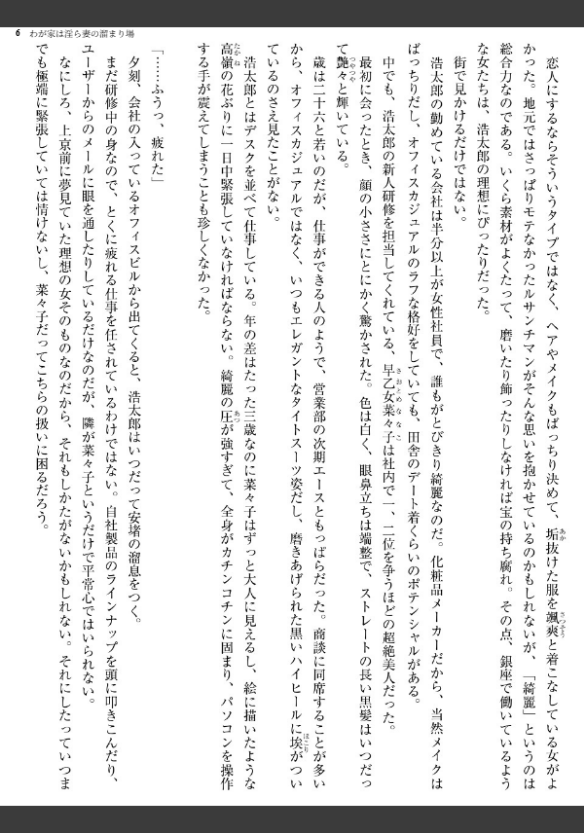 6 わが家は淫ら妻の溜まり場
恋人にするならそういうタイプではなく、ヘアやメイクもばっちり決めて、垢抜けた服を颯爽と着こなしている女がよ
かった。地元ではさっぱりモテなかったルサンチマンがそんな思いを抱かせているのかもしれないが、「綺麗」というのは
総合力なのである。いくら素材がよくたって、磨いたり飾ったりしなければ宝の持ち腐れ。その点、銀座で働いているよう
な女たちは、浩太郎の理想にぴったりだった。
街で見かけるだけではない。
浩太郎の勤めている会社は半分以上が女性社員で、誰もがとびきり綺麗なのだ。化粧品メーカーだから、当然メイクは
ばっちりだし、オフィスカジュアルのラフな格好をしていても、田舎のデート着くらいのポテンシャルがある。
中でも、浩太郎の新人研修を担当してくれている、早乙女菜々子は社内で一、二位を争うほどの超絶美人だった。
最初に会ったとき、顔の小ささにとにかく驚かされた。色は白く、眼鼻立ちは端整で、ストレートの長い黒髪はいつだっ
て艶々と輝いている。
歳は二十六と若いのだが、仕事ができる人のようで、営業部の次期エースともっぱらだった。商談に同席することが多い
から、オフィスカジュアルではなく、いつもエレガントなタイトスーツ姿だし、磨きあげられた黒いハイヒールに埃がつい
ているのさえ見たことがない。
浩太郎とはデスクを並べて仕事している。年の差はたった三歳なのに菜々子はずっと大人に見えるし、絵に描いたような
高嶺の花ぶりに一日中緊張していなければならない。綺麗の圧が強すぎて、全身がカチンコチンに固まり、パソコンを操作
する手が震えてしまうことも珍しくなかった。
「……ふうっ、疲れた」
夕刻、会社の入っているオフィスビルから出てくると、浩太郎はいつだって安堵の溜息をつく。
まだ研修中の身なので、とくに疲れる仕事を任されているわけではない。自社製品のラインナップを頭に叩きこんだり、
ユーザーからのメールに眼を通したりしているだけなのだが、隣が菜々子というだけで平常心ではいられない。
なにしろ、上京前に夢見ていた理想の女そのものなのだから、それもしかたがないかもしれない。それにしたっていつま
でも極端に緊張していては情けないし、菜々子だってこちらの扱いに困るだろう。